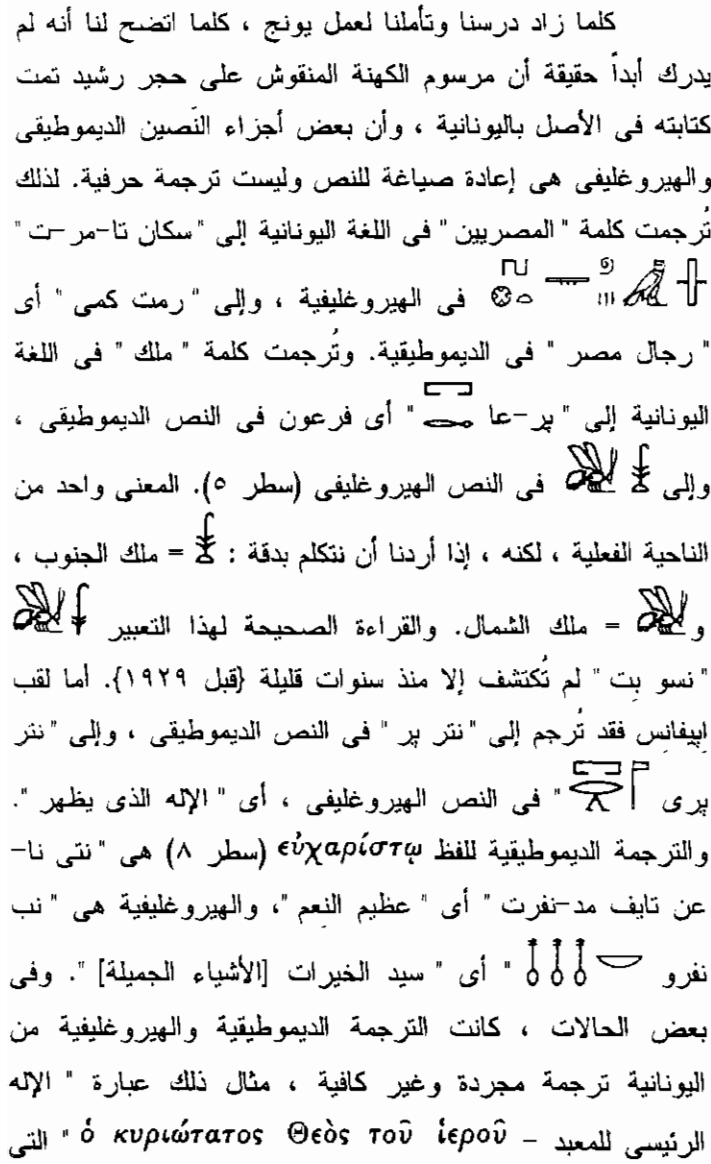 كلما زاد درسنا وتأملنا لعمل يونج ، كلما اتضح لنا أنه لم
يدرك أبداً حقيقة أن مرسوم الكهنة المنقوش على حجر رشيد تمت
كتابته فى الأصل باليونانية ، وأن بعض أجزاء النَصين الديموطيقى
والهيروغليفى هى إعادة صياغة للنص وليست ترجمة حرفية. لذلك
تُرجمت كلمة " المصريين " فى اللغة اليونانية إلى " سكان تا-مر-ت "
فى الهيروغليفية ، وإلى " رمت كمى " أى
" رجال مصر " فى الديموطيقية. وتُرجمت كلمة " ملك " فى اللغة
اليونانية إلى " پر-عا " أى فرعون فى النص الديموطيقى ،
وإلى فى النص الهيروغليفى (سطر ٥). المعنى واحد من
الناحية الفعلية ، لكنه ، إذا أردنا أن نتكلم بدقة : = ملك الجنوب ،
و = ملك الشمال. والقراءة الصحيحة لهذا التعبير
" نسو بِت " لم تُكتشف إلا منذ سنوات قليلة {قبل ١٩٢٩}. أما لقب
اِپيفانِس فقد تُرجم إلى " نتر پر " فى النص الديموطيقى ، وإلى " نتر
پرى " فى النص الهيروغليفى ، أى " الإله الذى يظهر ".
والترجمة الديموطيقية للفظ εὐχαρίστῳ (سطر ٨) هى " نتى نا-
عن تايف مد-نفرت " أى " عظيم النِعم "، والهيروغليفية هى " نب
نفرو " أى " سيد الخيرات [الأشياء الجميلة] ". وفى
بعض الحالات ، كانت الترجمة الديموطيقية والهيروغليفية من
اليونانية ترجمة مجردة وغير كافية ، مثال ذلك عبارة " الإله
الرئيسى للمعبد – ὁ κυριώτατος Θεὸς τοῦ ἱεροῦ " التى